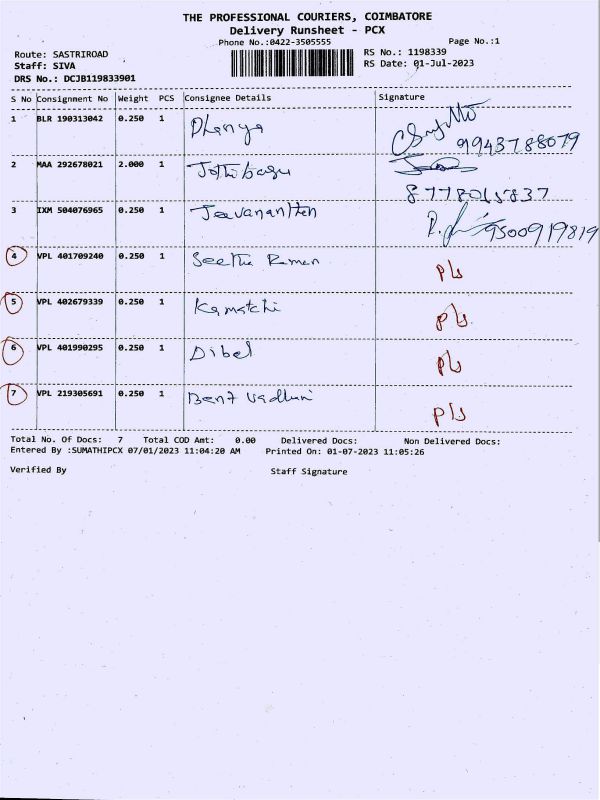 THE PROFESSIONAL COURIERS, COIMBATORE
Delivery Runsheet - PCX
Phone No.:0422-3505555 Page No.:1
Route: SASTRIROAD RS No.: 1198339
Staff: SIVA RS Date: 01-Jul-2023
DRS No.: DCJB119833901
S No Consignment No Weight PCS Consignee Details Signature
1 BLR 190313042 0.250 1 Dhanya 9943788079
2 MAA 292678021 2.000 1 Jothibasu
8778015837
3 IXM 504076965 0.250 1 Jeevananthen 9500919819
4 VPL 401709240 0.250 1 Seetha Raman P/s
5 VPL 402679339 0.250 1 Kamatchi P/s
6 VPL 401990295 0.250 1 Dibel P/s
7 VPL 219305691 0.250 1 P/s
Total No. Of Docs: 7 Total COD Amt: 0.00 Delivered Docs: Non Delivered Docs:
Entered By :SUMATHIPCX 07/01/2023 11:04:20 AM Printed On: 01-07-2023 11:05:26
Verified By Staff Signature